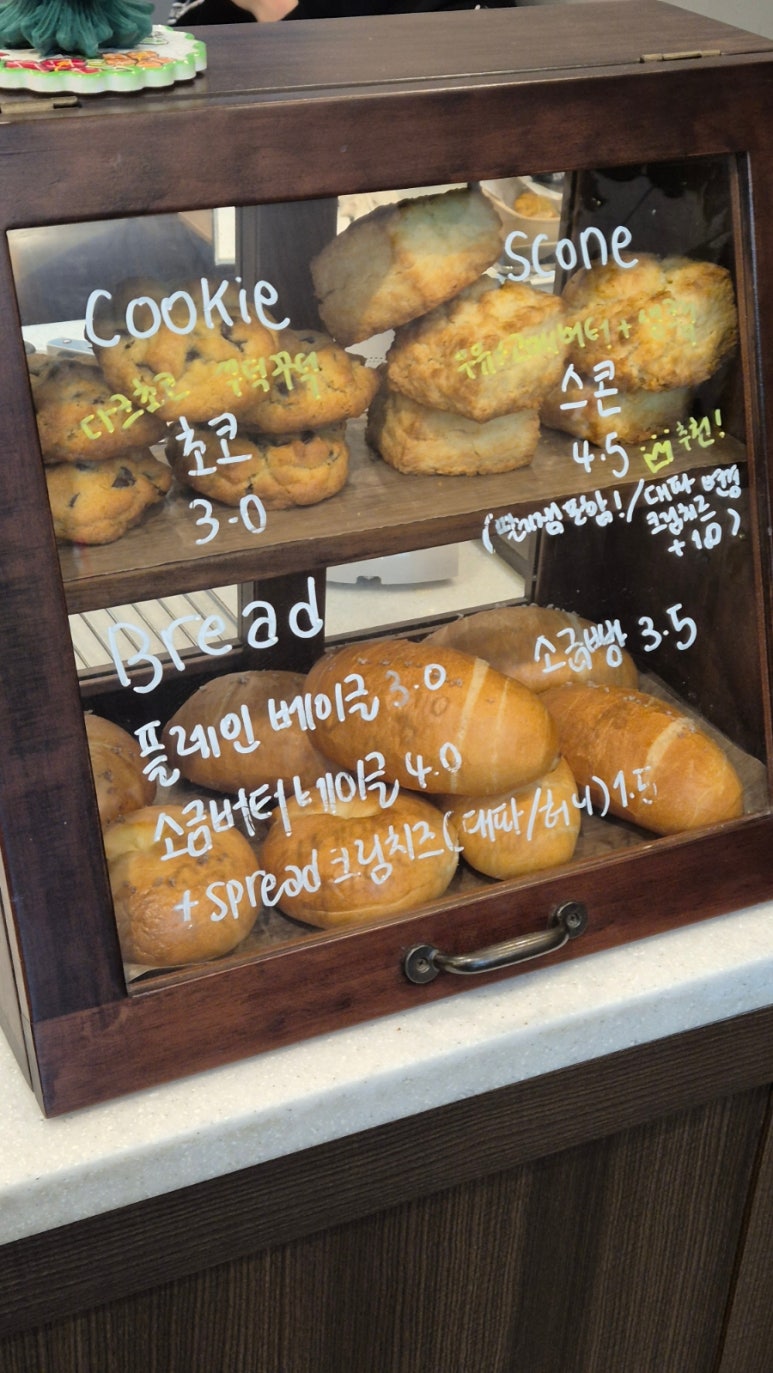 Cookie
다크초코 꾸덕꾸덕
초코
3.0
Scone
스콘
4.5 추천!
(딸기잼 포함! / 대파
크림치즈
+1.0)
Bread
소금빵 3.5
플레인 베이글 3.0
소금버터베이글 4.0
+ spread 크림치즈 (대파/허니) 1.5